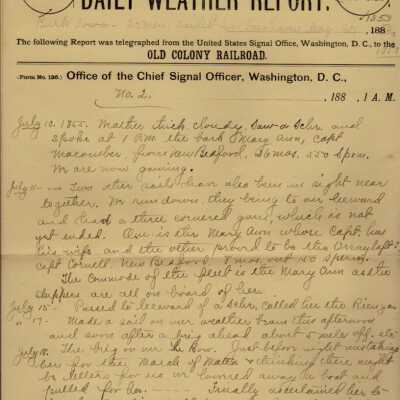 DAILY WEATHER REPORT.
1853
188
The following Report was telegraphed from the United States Signal Office, Washington, D. C., to the
OLD COLONY RAILROAD.
(Form No. 136.) Office of the Chief Signal Officer, Washington, D. C.,
No. 2. , 188 , 1 A. M.
July 10. 1855. Weather thick cloudy, Saw a Schr. and
spoke at 1 P.M. the bark Mary Ann, Capt
Macomber, from New Bedford, 26 mos, 550 Spm.
We are now gaming.
July 11 Two other sails have also been in sight near
together. We run down, they bring to our leeward
and have a three cornered gam, which is not
yet ended. One is the Mary Ann whose Capt. has
his wife, and the other proved to be the
Capt Cornell, New Bedford 8 mos. out 150 Sperm.
The Commode of the fleet is the Mary Ann as the
skippers are all on board of her.
July 15- Passed to leeward of a Schr, called her the Rienzi
" 17- Made a sail on our weather beam this afternoon
and soon after a brig ahead about 5 miles off. etc
July 18. The brig on our lee Bow. Just before night mistaking
her for the March of Mattn & thinking there might
be letters for us we lowered away the boat and
pulled for her. Finally ascertained her to